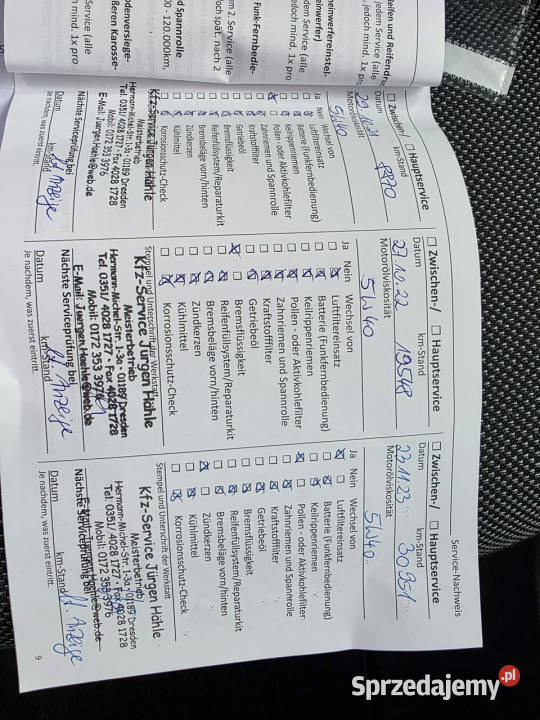 Service-Nachweis
☐ Zwischen-/ ☐ Hauptservice
Datum km-Stand
29.10.21
Motorölviskosität
5W40
Ja Nein Wechsel von
Luftfiltereinsatz
Batterie (Funkfernbedienung)
Keilrippenriemen
Pollen- oder Aktivkohlefilter
Zahnriemen und Spannrolle
Kraftstofffilter
Getriebeöl
Bremsflüssigkeit
Reifenfüllsystem/Reparaturkit
Bremsbeläge vorn/hinten
Zündkerzen
Kühlmittel
Korrosionsschutz-Check
Kfz-Service Jürgen Hähle
Meisterbetrieb
Hermann-Michel-Str. 1-3a · 01189 Dresden
Tel. 0351/ 4028 1727 · Fax 4028 1728
Mobil: 0172 353 3976
E-Mail: Juergen.Haehle@web.de
Nächste Serviceprüfung bei
Datum km-Stand
Anzeige
Je nachdem, was zuerst eintritt.
☐ Zwischen-/ ☐ Hauptservice
Datum km-Stand
27.10.22 19548
Motorölviskosität
5W40
Ja Nein Wechsel von
Luftfiltereinsatz
Batterie (Funkfernbedienung)
Keilrippenriemen
Pollen - oder Aktivkohlefilter
Zahnriemen und Spannrolle
Kraftstofffilter
Getriebeöl
Bremsflüssigkeit
Reifenfüllsystem/Reparaturkit
Bremsbeläge vorn/hinten
Zündkerzen
Kühlmittel
Korrosionsschutz-Check
Stempel und Unterschrift der Werkstatt
Kfz-Service Jürgen Hähle
Meisterbetrieb
Hermann-Michel-Str. 1-3a · 01189 Dresden
Tel. 0351/ 4028 1727 · Fax 4028 1728
Mobil: 0172 353 3976
E-Mail: Juergen.Haehle@web.de
Nächste Serviceprüfung bei
Datum km-Stand
Anzeige
Je nachdem, was zuerst eintritt.
☐ Zwischen-/ ☐ Hauptservice
Datum km-Stand
23.11.23 30951
Motorölviskosität
5W40
Ja Nein Wechsel von
Luftfiltereinsatz
Batterie (Funkfernbedienung)
Keilrippenriemen
Pollen - oder Aktivkohlefilter
Zahnriemen und Spannrolle
Kraftstofffilter
Getriebeöl
Bremsflüssigkeit
Reifenfüllsystem/Reparaturkit
Bremsbeläge vorn/hinten
Zündkerzen
Kühlmittel
Korrosionsschutz-Check
Stempel und Unterschrift der Werkstatt
Kfz-Service Jürgen Hähle
Meisterbetrieb
Hermann-Michel-Str. 1-3a · 01189 Dresden
Tel. 0351/ 4028 1727 · Fax 4028 1728
Mobil: 0172 353 3976
E-Mail: Juergen.Haehle@web.de
Nächste Serviceprüfung bei
Datum km-Stand
Anzeige
Je nachdem, was zuerst eintritt.
9
Sprzedajemy.pl